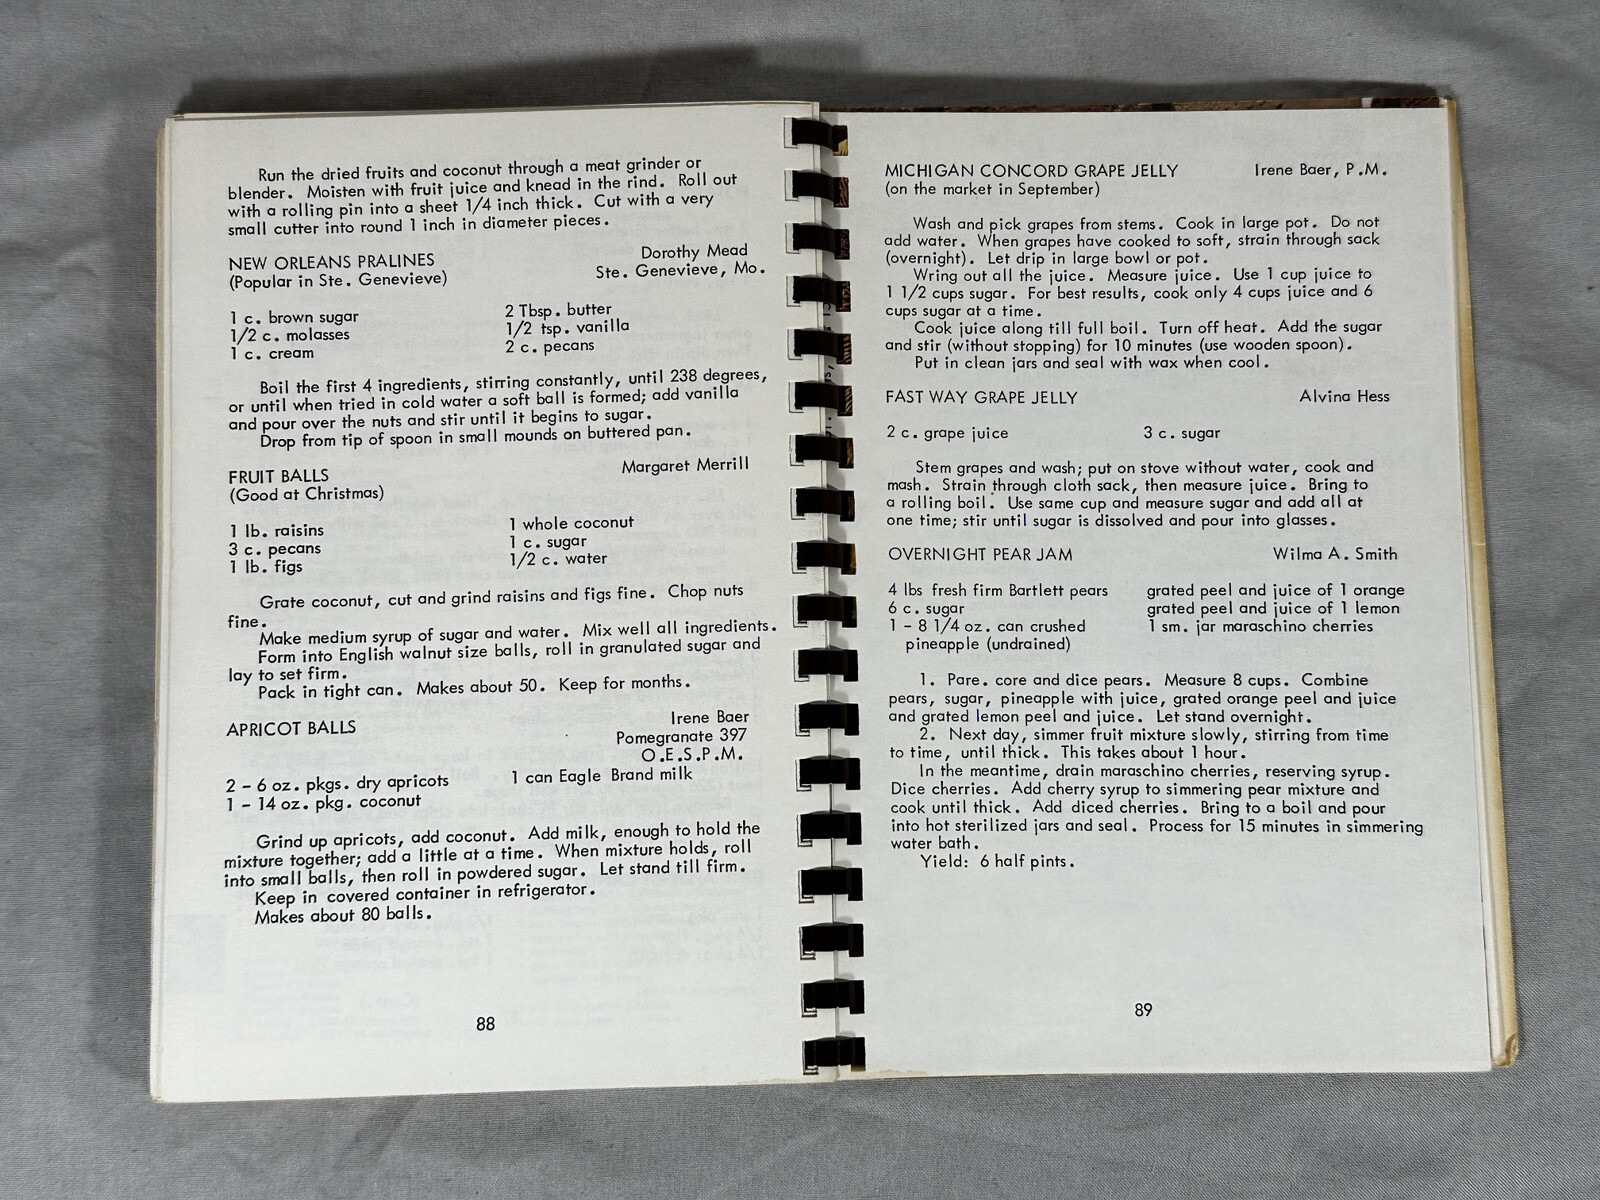 Run the dried fruits and coconut through a meat grinder or
blender. Moisten with fruit juice and knead in the rind. Roll out
with a rolling pin into a sheet 1/4 inch thick. Cut with a very
small cutter into round 1 inch in diameter pieces.
NEW ORLEANS PRALINES Dorothy Mead
(Popular in Ste. Genevieve) Ste. Genevieve, Mo.
1 c. brown sugar 2 Tbsp. butter
1/2 c. molasses 1/2 tsp. vanilla
1 c. cream 2 c. pecans
Boil the first 4 ingredients, stirring constantly, until 238 degrees,
or until when tried in cold water a soft ball is formed; add vanilla
and pour over the nuts and stir until it begins to sugar.
Drop from tip of spoon in small mounds on buttered pan.
FRUIT BALLS Margaret Merrill
(Good at Christmas)
1 lb. raisins 1 whole coconut
3 c. pecans 1 c. sugar
1 lb. figs 1/2 c. water
Grate coconut, cut and grind raisins and figs fine. Chop nuts
fine.
Make medium syrup of sugar and water. Mix well all ingredients.
Form into English walnut size balls, roll in granulated sugar and
lay to set firm.
Pack in tight can. Makes about 50. Keep for months.
APRICOT BALLS Irene Baer
Pomegranate 397
O.E.S.P.M.
2 - 6 oz. pkgs. dry apricots 1 can Eagle Brand milk
1 - 14 oz. pkg. coconut
Grind up apricots, add coconut. Add milk, enough to hold the
mixture together; add a little at a time. When mixture holds, roll
into small balls, then roll in powdered sugar. Let stand till firm.
Keep in covered container in refrigerator.
Makes about 80 balls.
88
MICHIGAN CONCORD GRAPE JELLY Irene Baer, P.M.
(on the market in September)
Wash and pick grapes from stems. Cook in large pot. Do not
add water. When grapes have cooked to soft, strain through sack
(overnight). Let drip in large bowl or pot.
Wring out all the juice. Measure juice. Use 1 cup juice to
1 1/2 cups sugar. For best results, cook only 4 cups juice and 6
cups sugar at a time.
Cook juice along till full boil. Turn off heat. Add the sugar
and stir (without stopping) for 10 minutes (use wooden spoon).
Put in clean jars and seal with wax when cool.
FAST WAY GRAPE JELLY Alvina Hess
2 c. grape juice 3 c. sugar
Stem grapes and wash; put on stove without water, cook and
mash. Strain through cloth sack, then measure juice. Bring to
a rolling boil. Use same cup and measure sugar and add all at
one time; stir until sugar is dissolved and pour into glasses.
OVERNIGHT PEAR JAM Wilma A. Smith
4 lbs fresh firm Bartlett pears grated peel and juice of 1 orange
6 c. sugar grated peel and juice of 1 lemon
1 - 8 1/4 oz. can crushed 1 sm. jar maraschino cherries
pineapple (undrained)
1. Pare. core and dice pears. Measure 8 cups. Combine
pears, sugar, pineapple with juice, grated orange peel and juice
and grated lemon peel and juice. Let stand overnight.
2. Next day, simmer fruit mixture slowly, stirring from time
to time, until thick. This takes about 1 hour.
In the meantime, drain maraschino cherries, reserving syrup.
Dice cherries. Add cherry syrup to simmering pear mixture and
cook until thick. Add diced cherries. Bring to a boil and pour
into hot sterilized jars and seal. Process for 15 minutes in simmering
water bath.
Yield: 6 half pints.
89